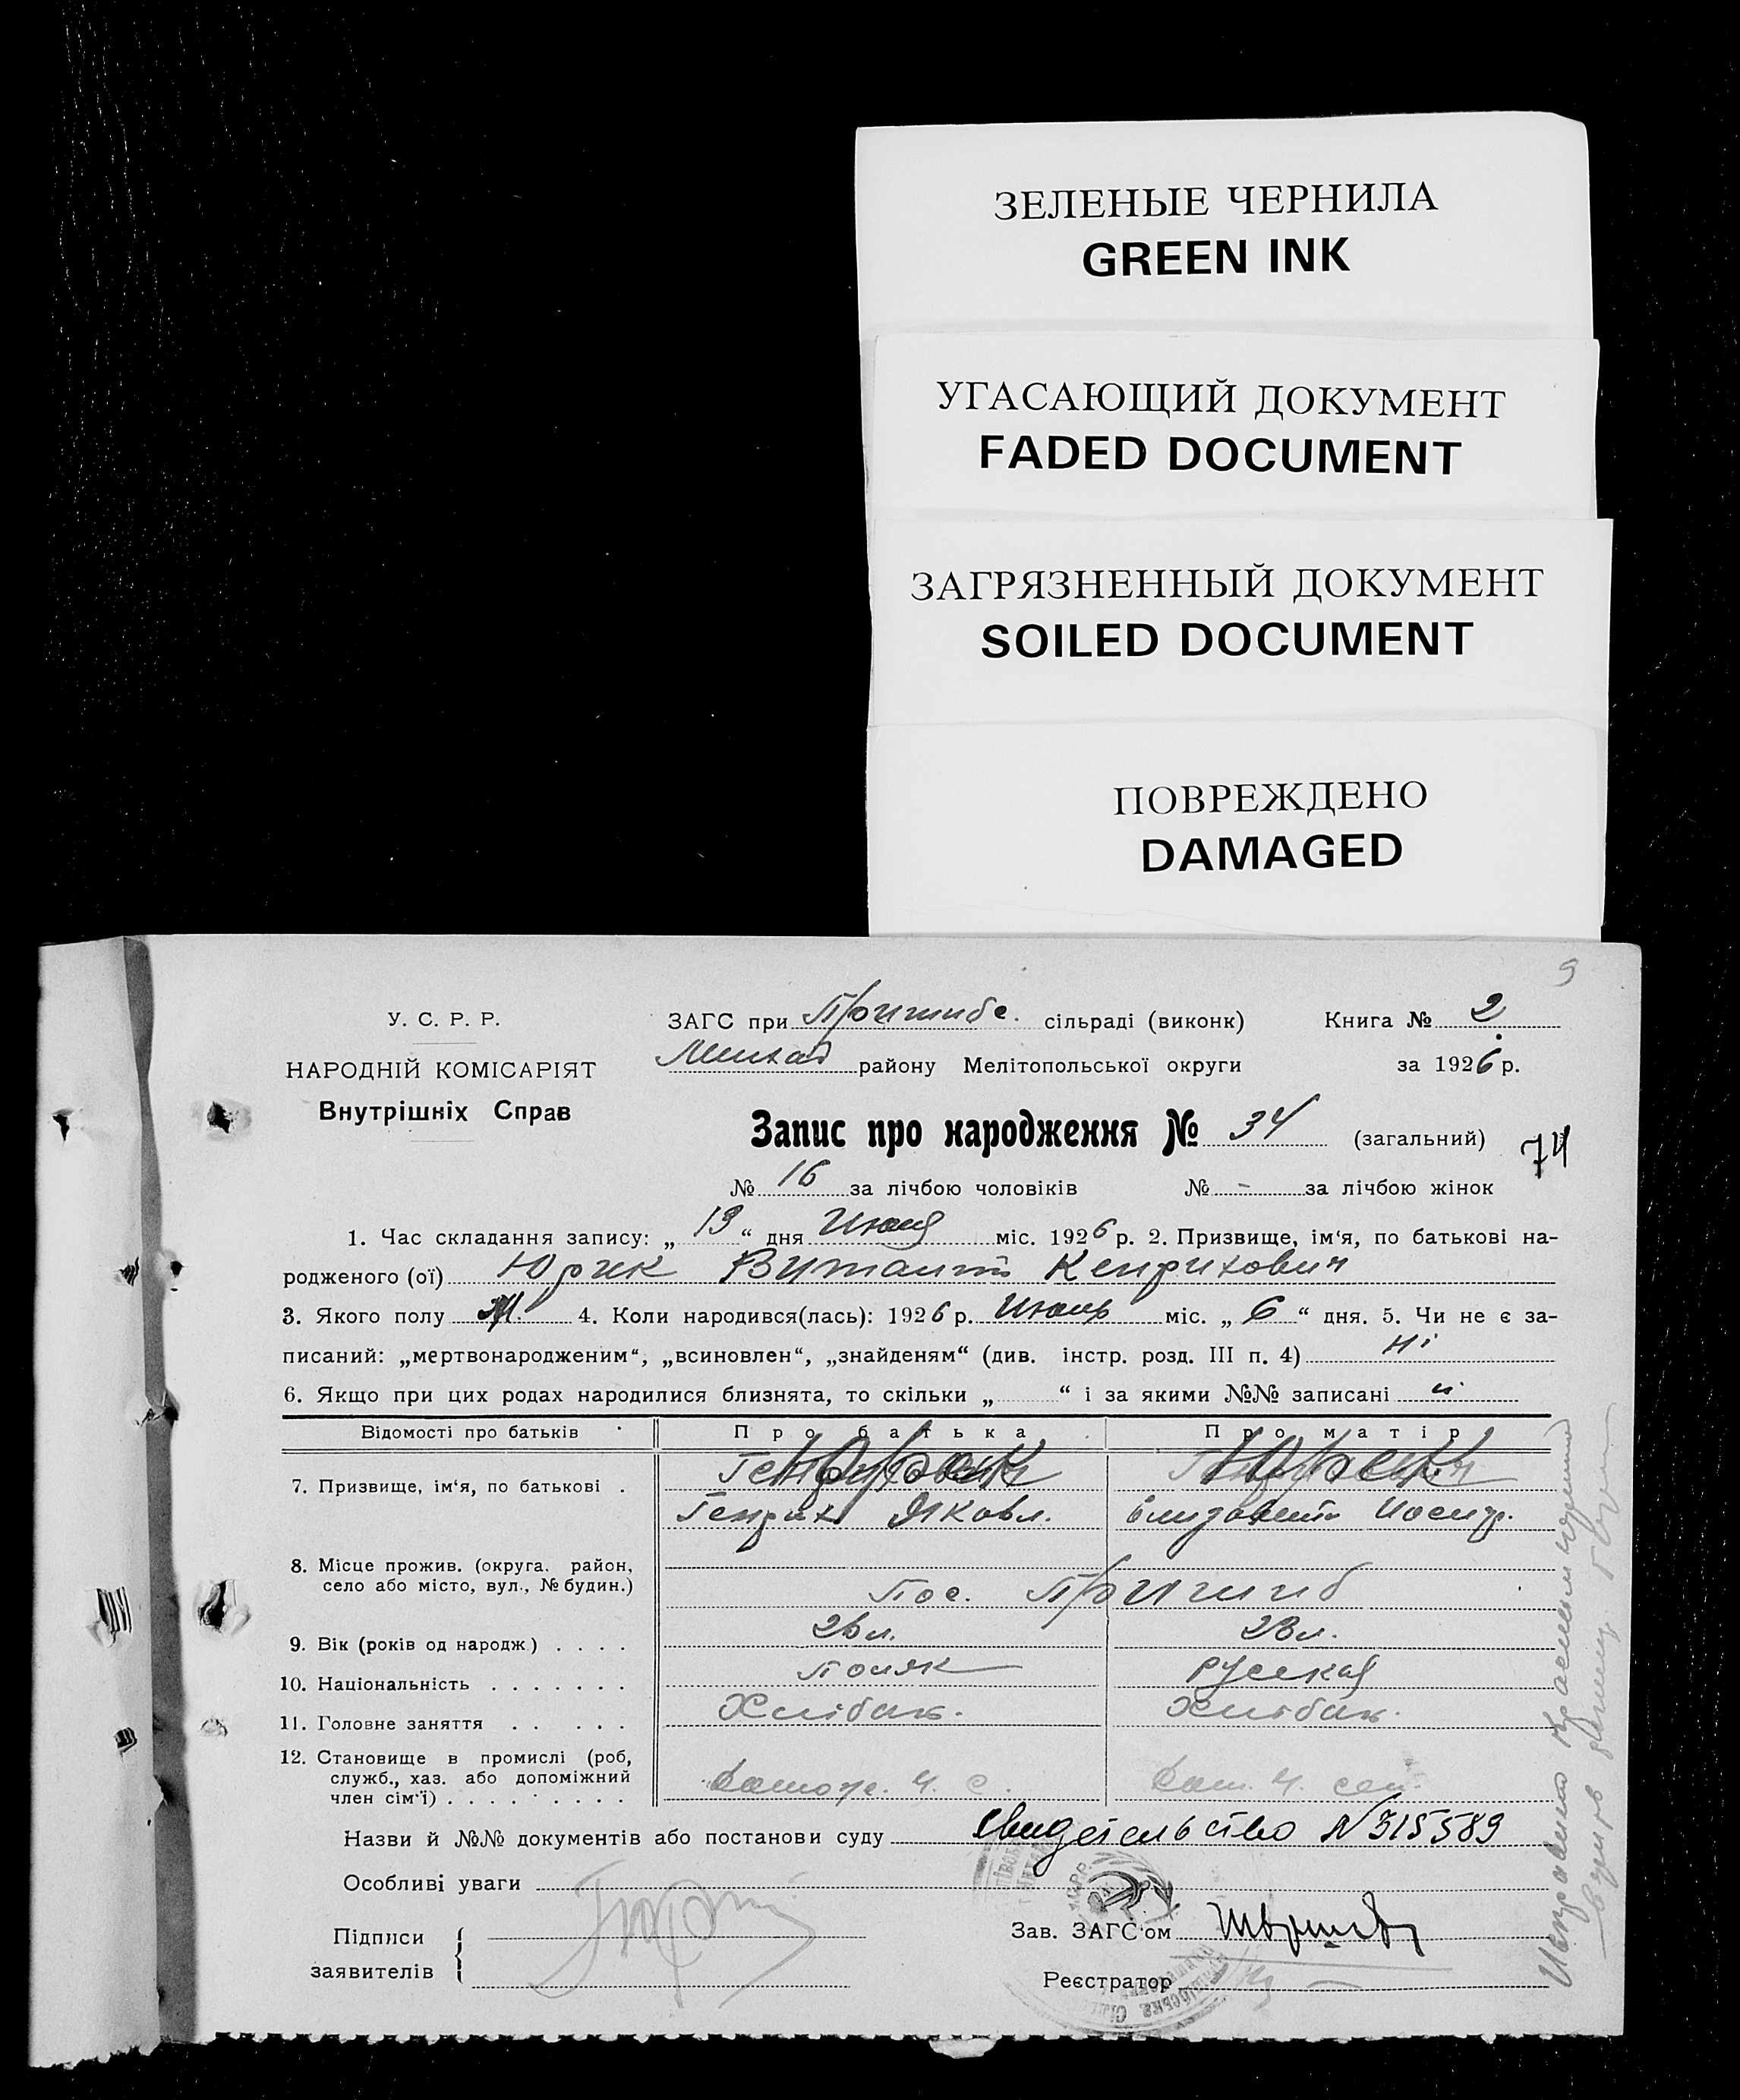 ЗЕЛЕНЫЕ ЧЕРНИЛА
GREEN INK
УГАСАЮЩИЙ ДОКУМЕНТ
FADED DOCUMENT
ЗАГРЯЗНЕННЫЙ ДОКУМЕНТ
SOILED DOCUMENT
ПОВРЕЖДЕНО
DAMAGED
9
У. С. Р. Р.
НАРОДНІЙ КОМІСАРІЯТ
Внутрішніх Справ
ЗАГС при Пришибс. сільраді (виконк) Книга № 2
району Мелітопольської округи за 1926 р.
Запис про народження № 34 (загальний) 74
№ 16 за лічбою чоловіків № - за лічбою жінок
1. Час складання запису: „ 13 “ дня Июля міс. 1926 р. 2. Призвище, ім‘я, по батькові на-
родженого (ої) Юрек Витаит Генрихович
3. Якого полу М. 4. Коли народився(лась): 1926 р. Июль міс. „ 6 “ дня. 5. Чи не є за-
писаний: „мертвонародженим“, „всиновлен“, „знайденям“ (див. інстр. розд. III п. 4) ні
6. Якщо при цих родах народилися близнята, то скільки „ “ і за якими №№ записані
Відомості про батьків Про батька Про матір
7. Призвище, ім‘я, по батькові . Юрек Юрек
Генрих Яковл. Елизавета Иосиф.
8. Місце прожив. (округа. район,
село або місто, вул., № будин.)
Пос. Пришиб
9. Вік (років од народж) . . . . 26 л. 23 л.
10. Національність . . . . . . . Поляк Руская
11. Головне заняття . . . . . Хлібаж. Хлібаж.
12. Становище в промислі (роб,
служб., хаз. або допоміжний
член сім‘ї) . . . . . . . . .
Назви й №№ документів або постанови суду свидетельство N 315589
Особливі уваги
Підписи
заявителів
Зав. ЗАГС‘ом
Реєстратор